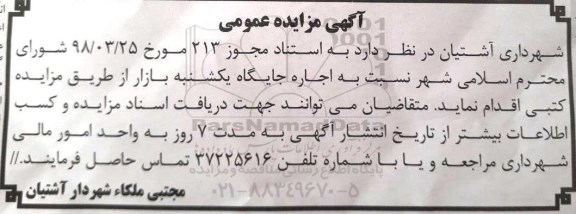 آگهی مزایده عمومی
شهرداری آشتیان در نظر دارد به استناد مجوز ۲۱۳ مورخ ۹۸/۰۳/۲۵ شورای
محترم اسلامی شهر نسبت به اجاره جایگاه یکشنبه بازار از طریق مزایده
کتبی اقدام نماید. متقاضیان می توانند جهت دریافت اسناد مزایده و کسب
اطلاعات بیشتر از تاریخ انتشار آگهی به مدت ۷ روز به واحد امور مالی
شهرداری مراجعه و یا با شماره تلفن ۳۷۲۲۵۶۱۶ تماس حاصل فرمایند.//
مجتبی ملکاء شهردار آشتیان
ParsNamadData
پایگاه اطلاع رسانی مناقصه و مزایده
۰۲۱-۸۸۳۴۹۶۷۰-۵